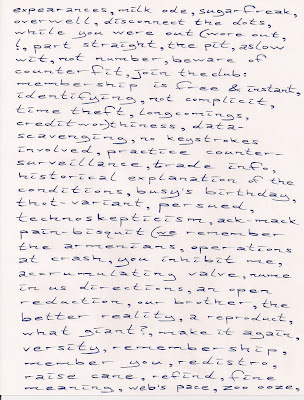 expearances, milk ode, sugar freak,
overwell, disconnect the dots,
while you were out (wore out,
(, part straight, the pit, aslow
wit, not number, beware of
counterfit, join the club:
membership is free & instant,
identifying, not complicit,
time theft, longcomings,
credit-wor)thiness, data-
scavenging, no keystrokes
involved, practice counter-
surveillance, trade info,
historical explanation, the
conditions, busy's birthday,
thot-variant, persued,
technoskepticism, ack-mack
pain-bisquit (we remember
the armenians, operations
at crash, you inhibit me,
accrumulating valve, nume
in us directions, an open
reduction, our brother, the
better reality, a reproduct,
what giant?, make it again,
versity, remember ship,
member you, redistro,
raise cane, refind, fine
meaning, web's pace, zoo ooze,